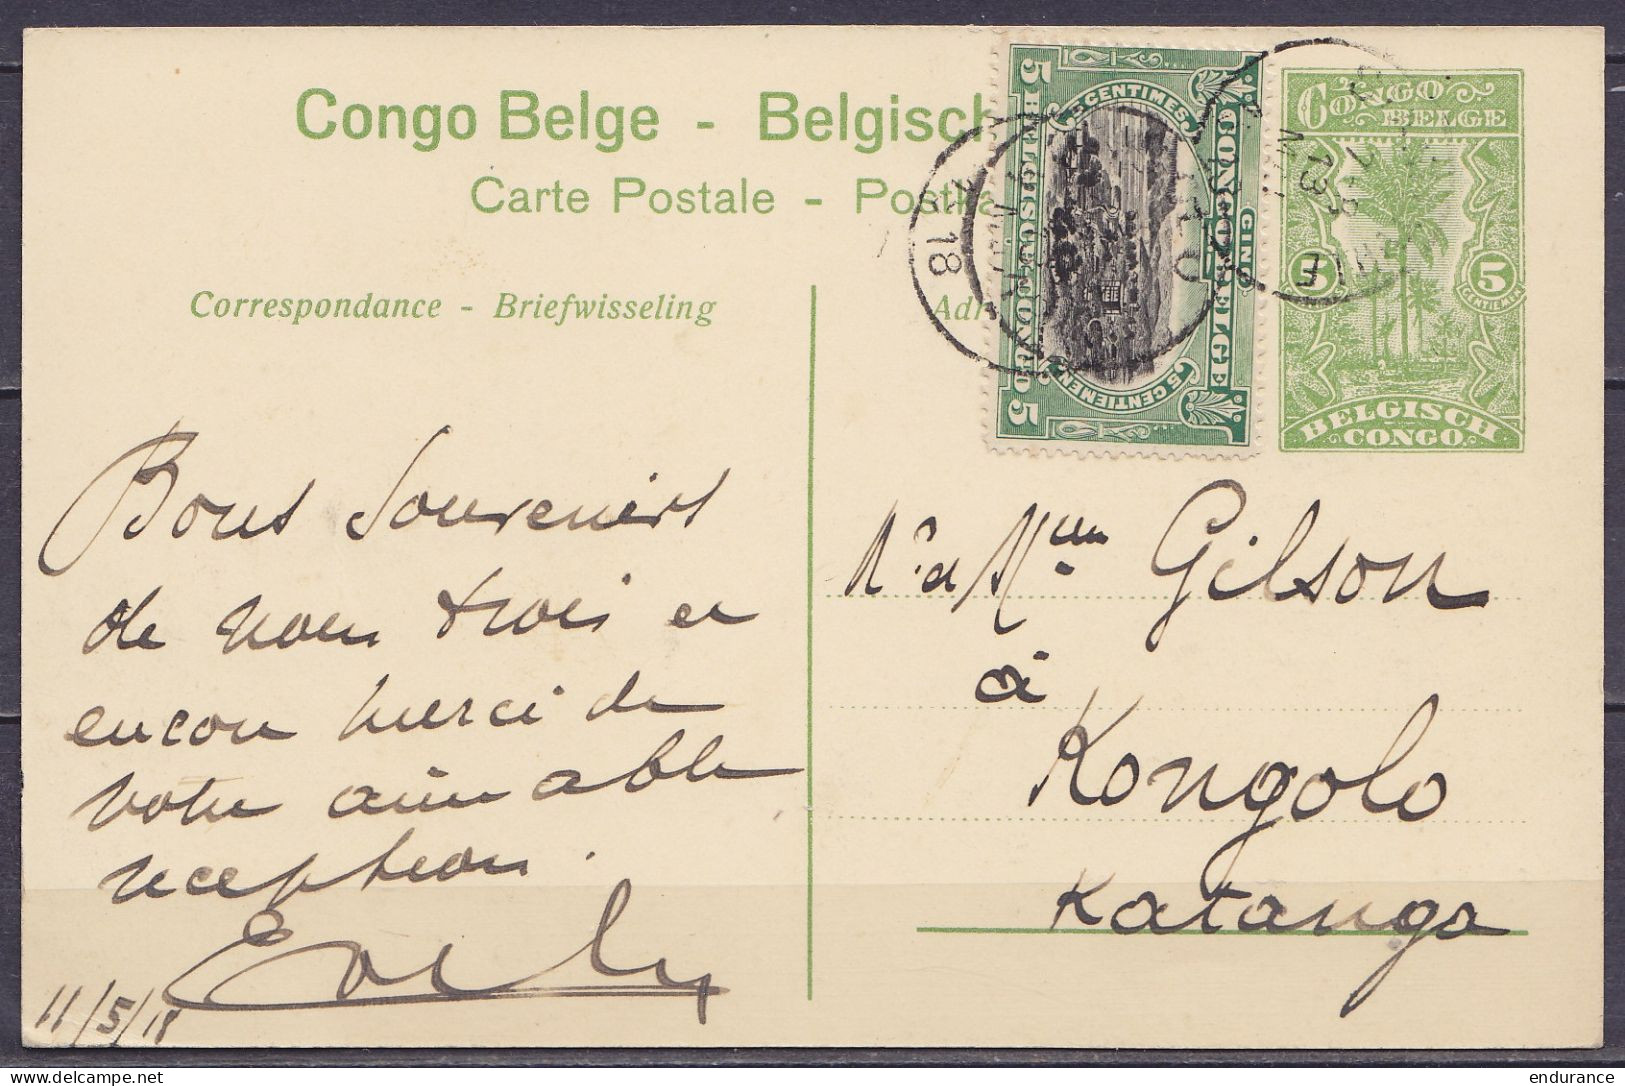 Congo Belge - Belgisch
Carte Postale - Postka
Correspondance - Briefwisseling
Adr
CONGO
BELGE
5 5
CENTIEMEN
BELGISCH
CONGO.
5 CENTIMES
CINQ
CONGO BELGE
BELGISCH CONGO
5 CENTIEMEN
5 5
18
13
Bons Souvenirs
de nous trois et
encore merci de
votre aimable
réception.
11/5/18
Mr. et Mme Gilson
à
Kongolo
Katanga
delcampe.net
endurance